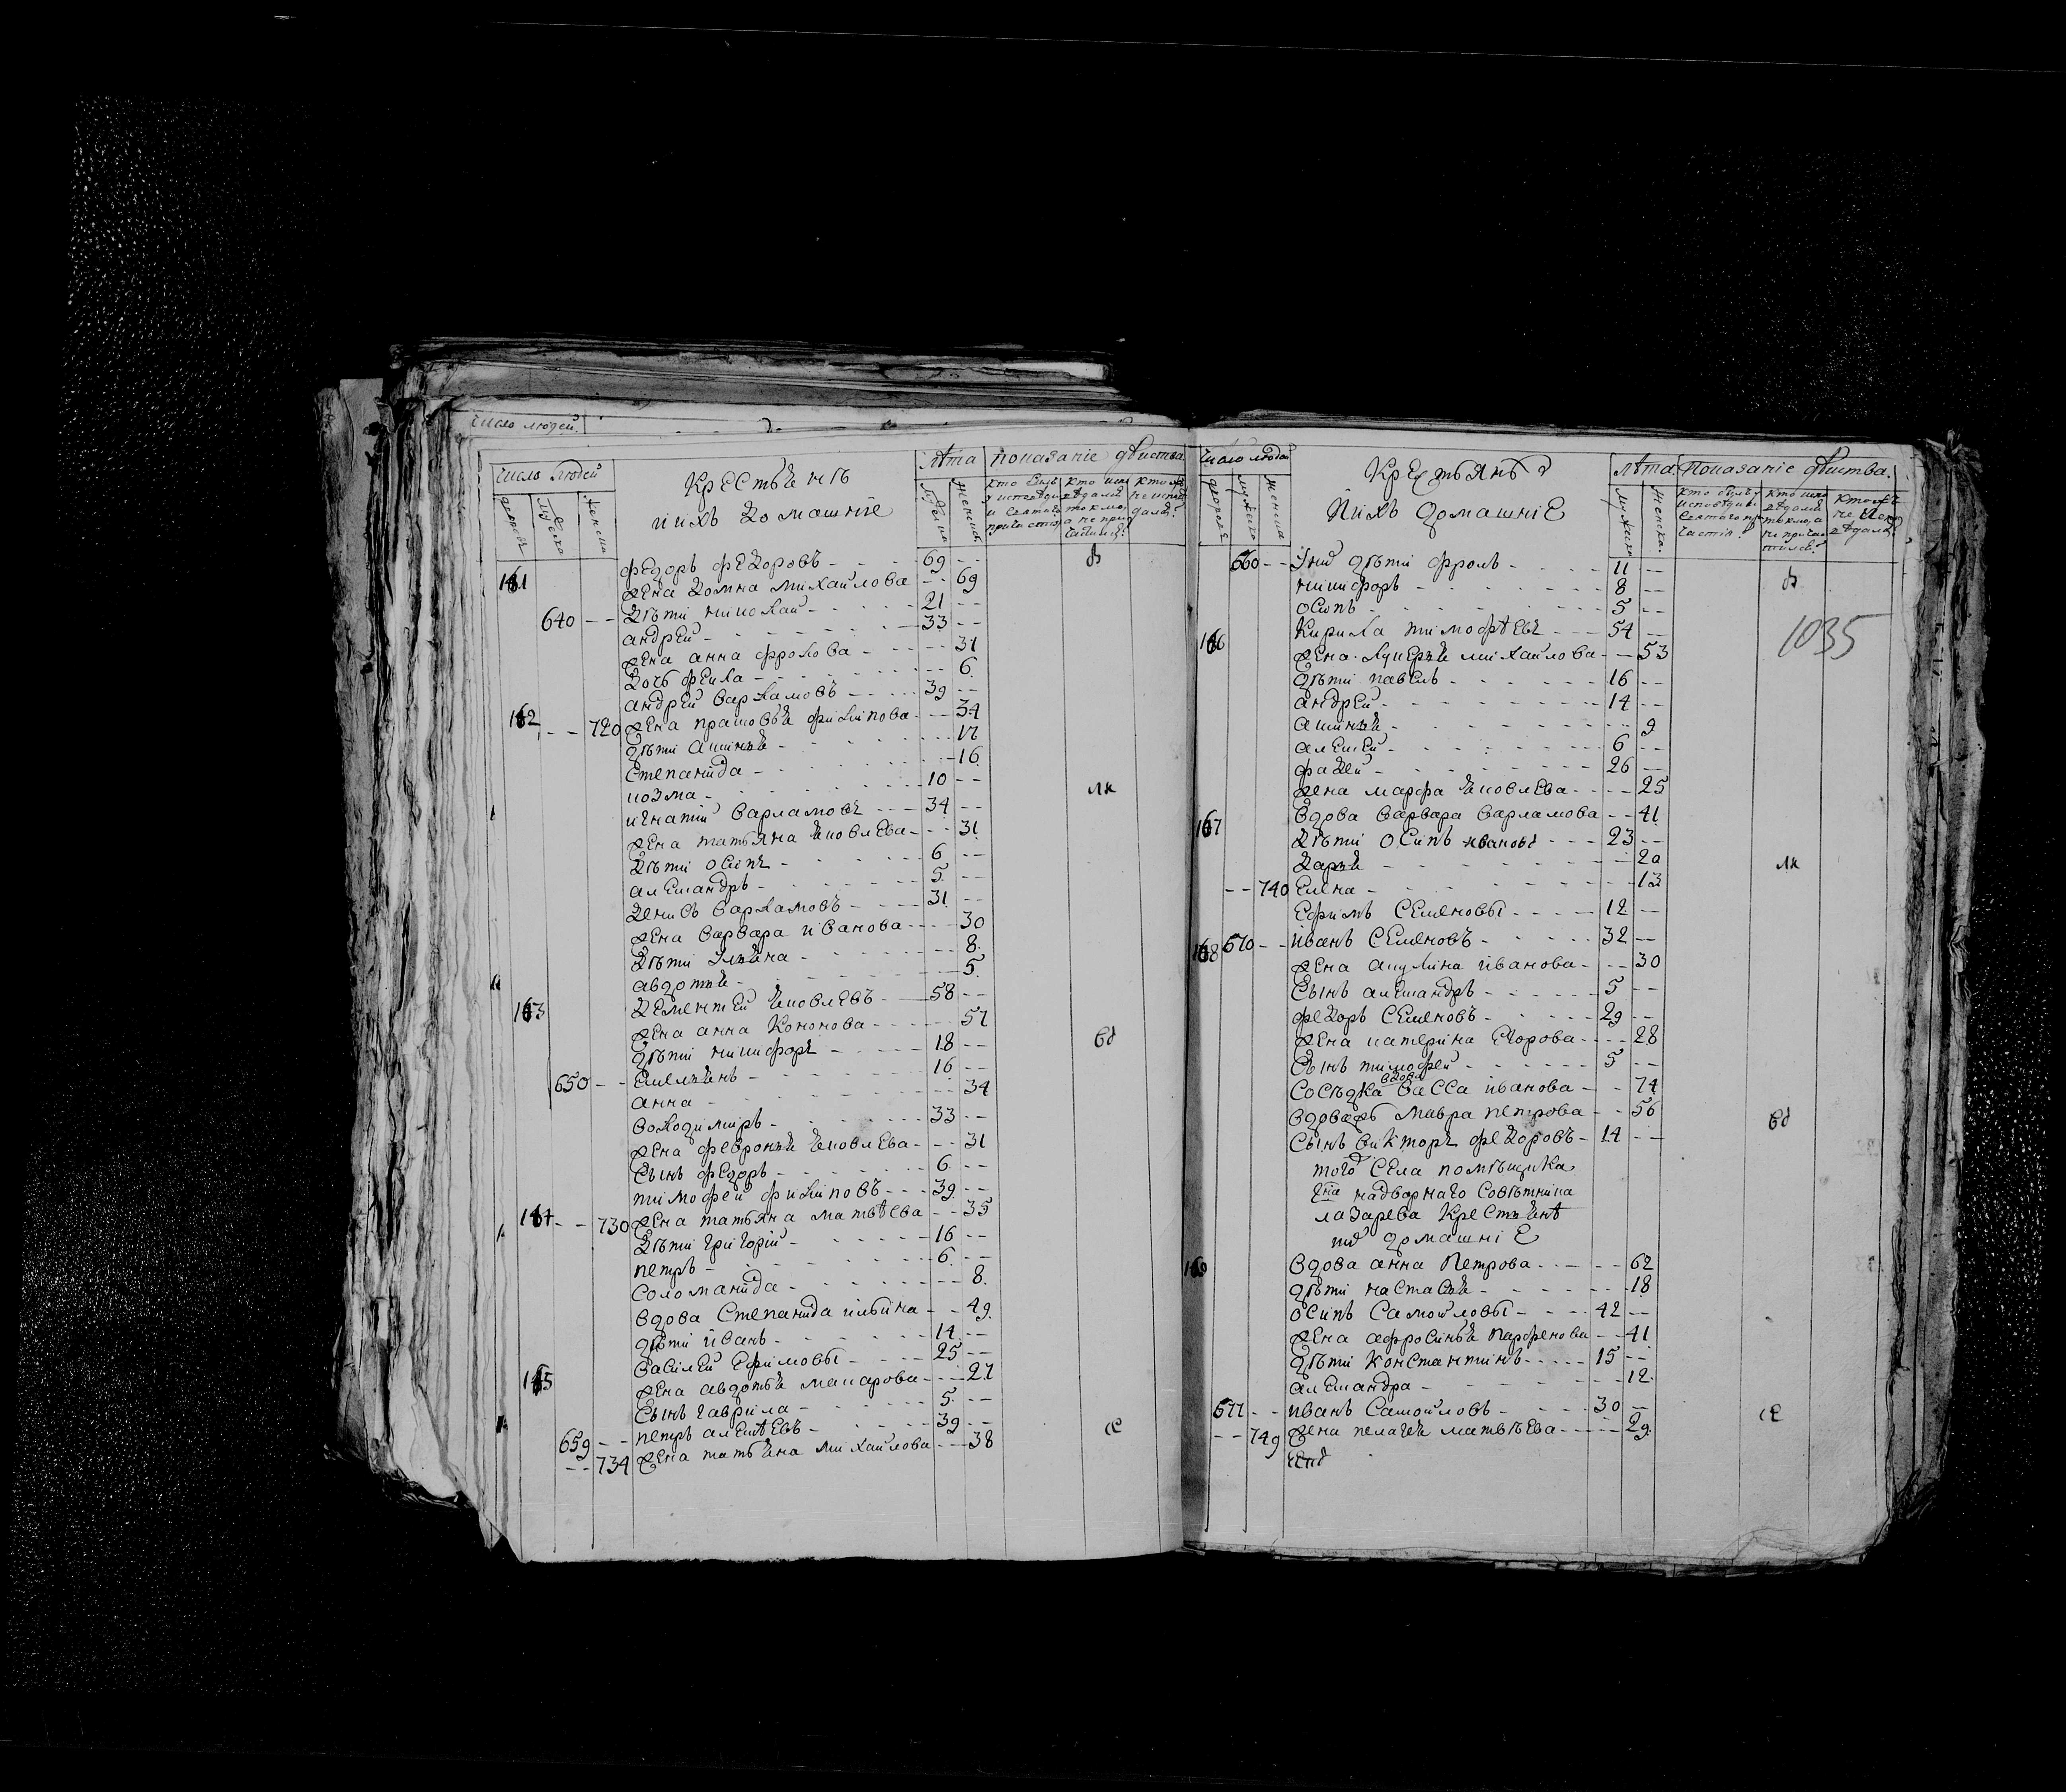 число людей
число людей
дворовъ
мужеска
женска
Крестьянъ
ииихъ домашніе
лѣта
мужеска
женска
показаніе дѣиства
161 федоръ федоровъ 69
жена домна михайлова 69
640 дѣти николай 21
андрей 33
жена анна фролова 31
дочь фекла 6
162 андрей варламовъ 39
720 жена прасковья филипова 34
дѣти аксинья 17
степанида 16
козма 10
игнатій варламовъ 34
жена татьяна яковлева 31
дѣти осипъ 6
александръ 5
денисъ варламовъ 31
жена варвара иванова 30
дѣти ульяна 8
авдотья 5
163 дементей яковлевъ 58
жена анна кононова 57
дѣти никифоръ 18
650 емельянъ 16
анна 34
володимиръ 33
жена февронья яковлева 31
сынъ федоръ 6
164 тимофей филиповъ 39
730 жена татьяна матвѣева 35
дѣти григорій 16
петръ 6
соломанида 8
вдова степанида ильина 49
дѣти иванъ 14
василей ефимовы 25
165 жена авдотья макарова 27
сынъ гаврила 5
659 петръ алексѣевъ 39
734 жена татьяна михайлова 38
число людей
дворовъ
мужеска
женска
Крестьянъ
Иихъ домашніе
лѣта
мужеска
женска.
показаніе дѣиства.
1035
660 ихъ дѣти фролъ 11
никифоръ 8
осипъ 5
166 кирила тимофѣевъ 54
жена лукерья михайлова 53
дѣти павелъ 16
андрей 14
аксинья 9
алексей 6
фадей 26
жена марфа яковлева 25
167 вдова варвара варламова 41
дѣти осипъ ивановъ 23
дарья 20
740 елена 13
ефимъ семеновы 12
168 670 иванъ семеновъ 32
жена акулина иванова 30
сынъ александръ 5
федоръ семеновъ 29
жена катерина егорова 28
сынъ тимофей 5
сосѣдка вдова васса иванова 74
вдовая мавра петрова 56
сынъ викторъ федоровъ 14
того села помѣщика
гна надворнаго совѣтника
лазарева крестьянѣ
их домашніе
169 вдова анна петрова 62
дѣти настасья 18
осипъ самоиловы 42
жена афросинья парфенова 41
дѣти константинъ 15
александра 12
677 иванъ самоиловъ 30
749 жена пелагея матвѣева 29